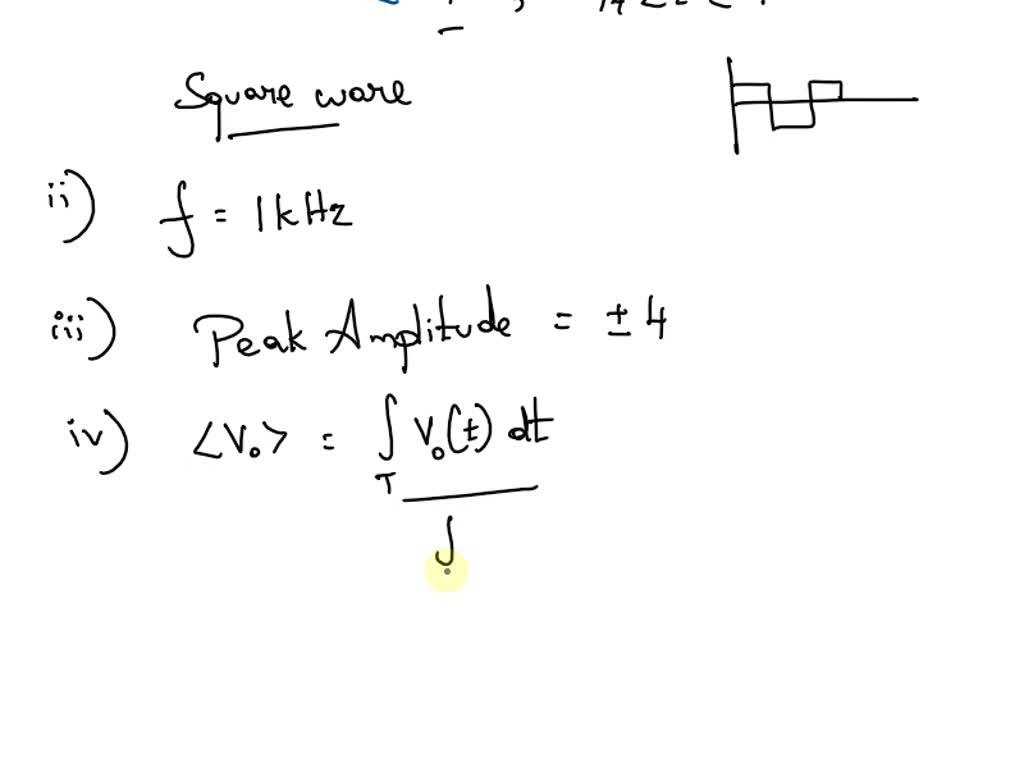 Square ware
ii) f = 1kHz
iii) Peak Amplitude = ±4
iv) <V₀> = ∫ V₀(t) dt
T
∫